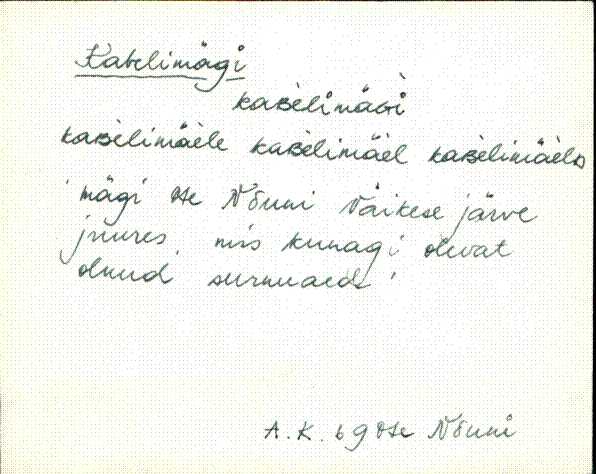 Kabelimägi
kaʙèlimäɢi
kaʙèlimäele kaʙèlimäel kaʙèlimäelᴅ
' mägi Ote Nõuni Väikese järve
juures, mis kunagi olevat
olnud surnuaed. '
A. K. 69 Ote Nõuni